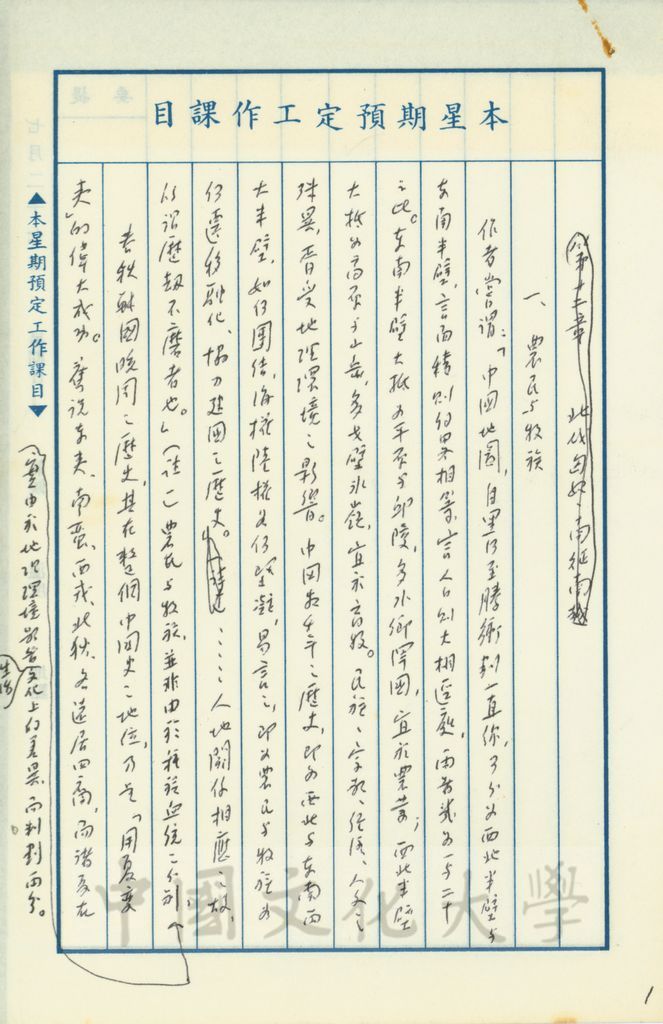 本星期預定工作課目
第十二章 北伐匈奴、南征南越
一、農民与牧族
作者嘗謂:「中國地圖,自黑河至騰衝劃一直線,可分為西北半壁与
東南半壁,言面積則約畧相等,言人口則大相逕庭,兩者殆為一与二十
之比。東南半壁大抵為平原与邱陵,多水鄉澤國,宜於農業;西北半壁
大抵為高原与山岳,多戈壁冰嶺,宜於畜牧。民族、宗教、語言、人文之
殊異,胥受地理環境之影響。中國数千年之歷史,即為西北与東南兩
大半壁,如何團結,海權陸權如何堅凝,易言之,即為農民与牧族如
何遷移融化、協力建國之歷史。……人地關係相應之故,
所謂歷劫不磨者也。」(註一)農民与牧族,並非由於種族血統之分別,
春秋戰國晚周之歷史,其在整個中國史之地位,乃是「用夏變
夷」的偉大成功。舊說東夷、南蠻、西戎、北狄、各遠居四裔,而諸夏在
實由於地理環境影響文化上的差異,而判劃兩分。
生活
▲本星期預定工作課目▼
七月二
提要
中國文化大學
1